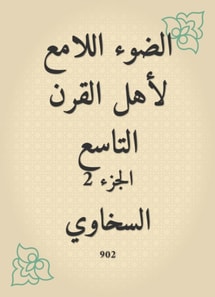 الضوء اللامع
لأهل القرن
التاسع
الجزء 2
السخاوي
902